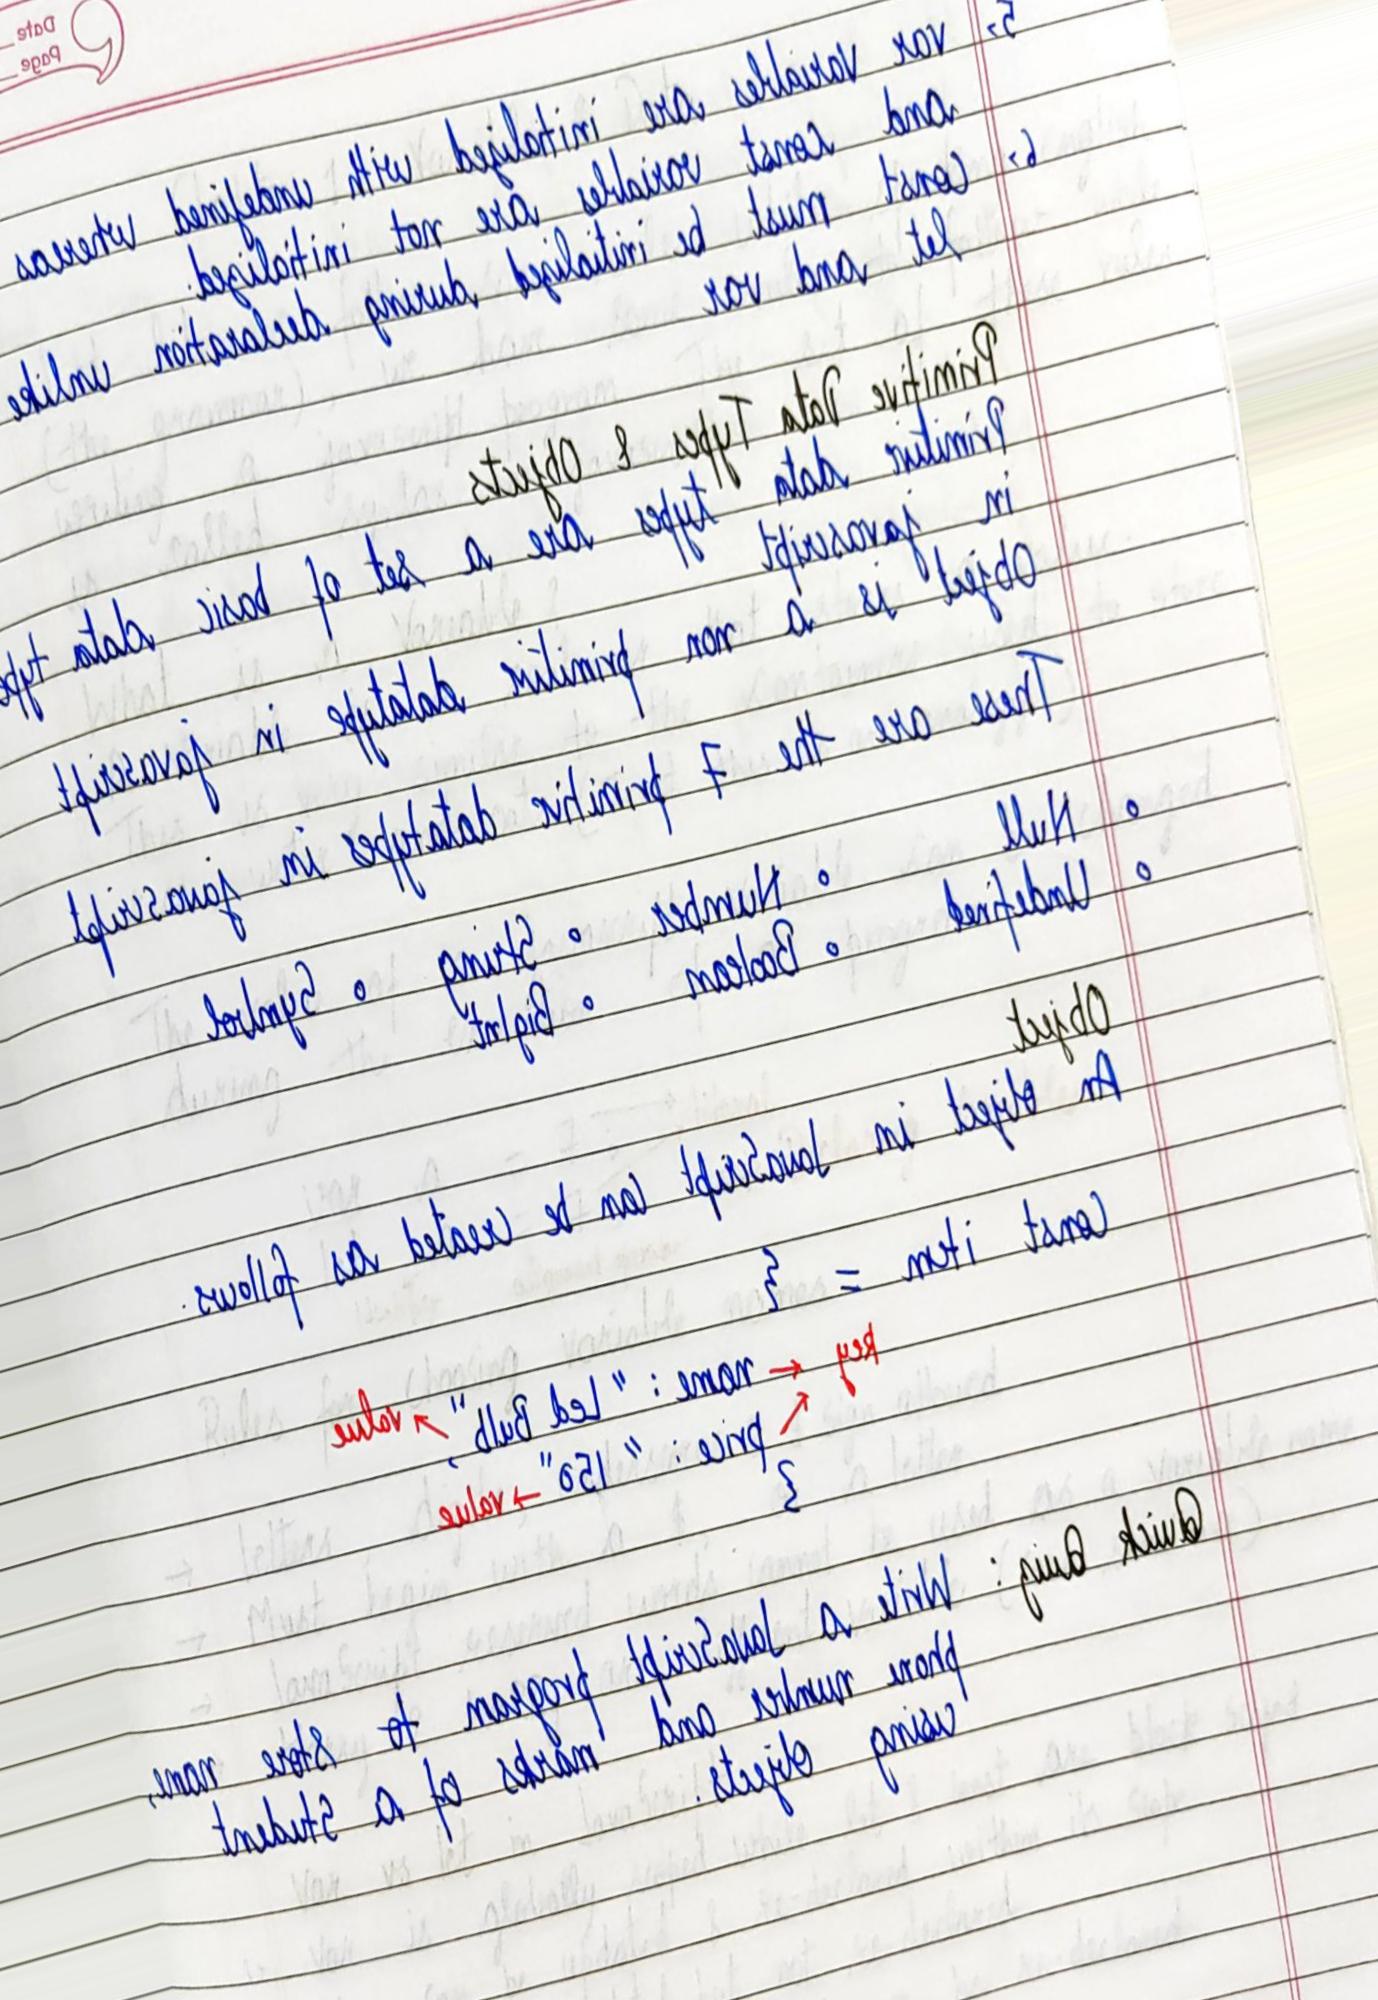 Date
Page
5→ var variables are initialized with undefined whereas
and const variables are not initialized.
6→ const must be initialized during declaration unlike
let and var
Primitive Data Types & Objects
Primitive data types are a set of basic data type
in javascript
Object is a non primitive datatype in javascript
These are the 7 primitive datatypes in javascript
• Null • Number • String • Symbol
• Undefined • Boolean • BigInt
Object
An object in JavaScript can be created as follows.
const item = {
key → name : "Led Bulb", → value
price : "150" → value
}
Quick Quiz : Write a JavaScript program to store name,
phone number and marks of a student
using objects.